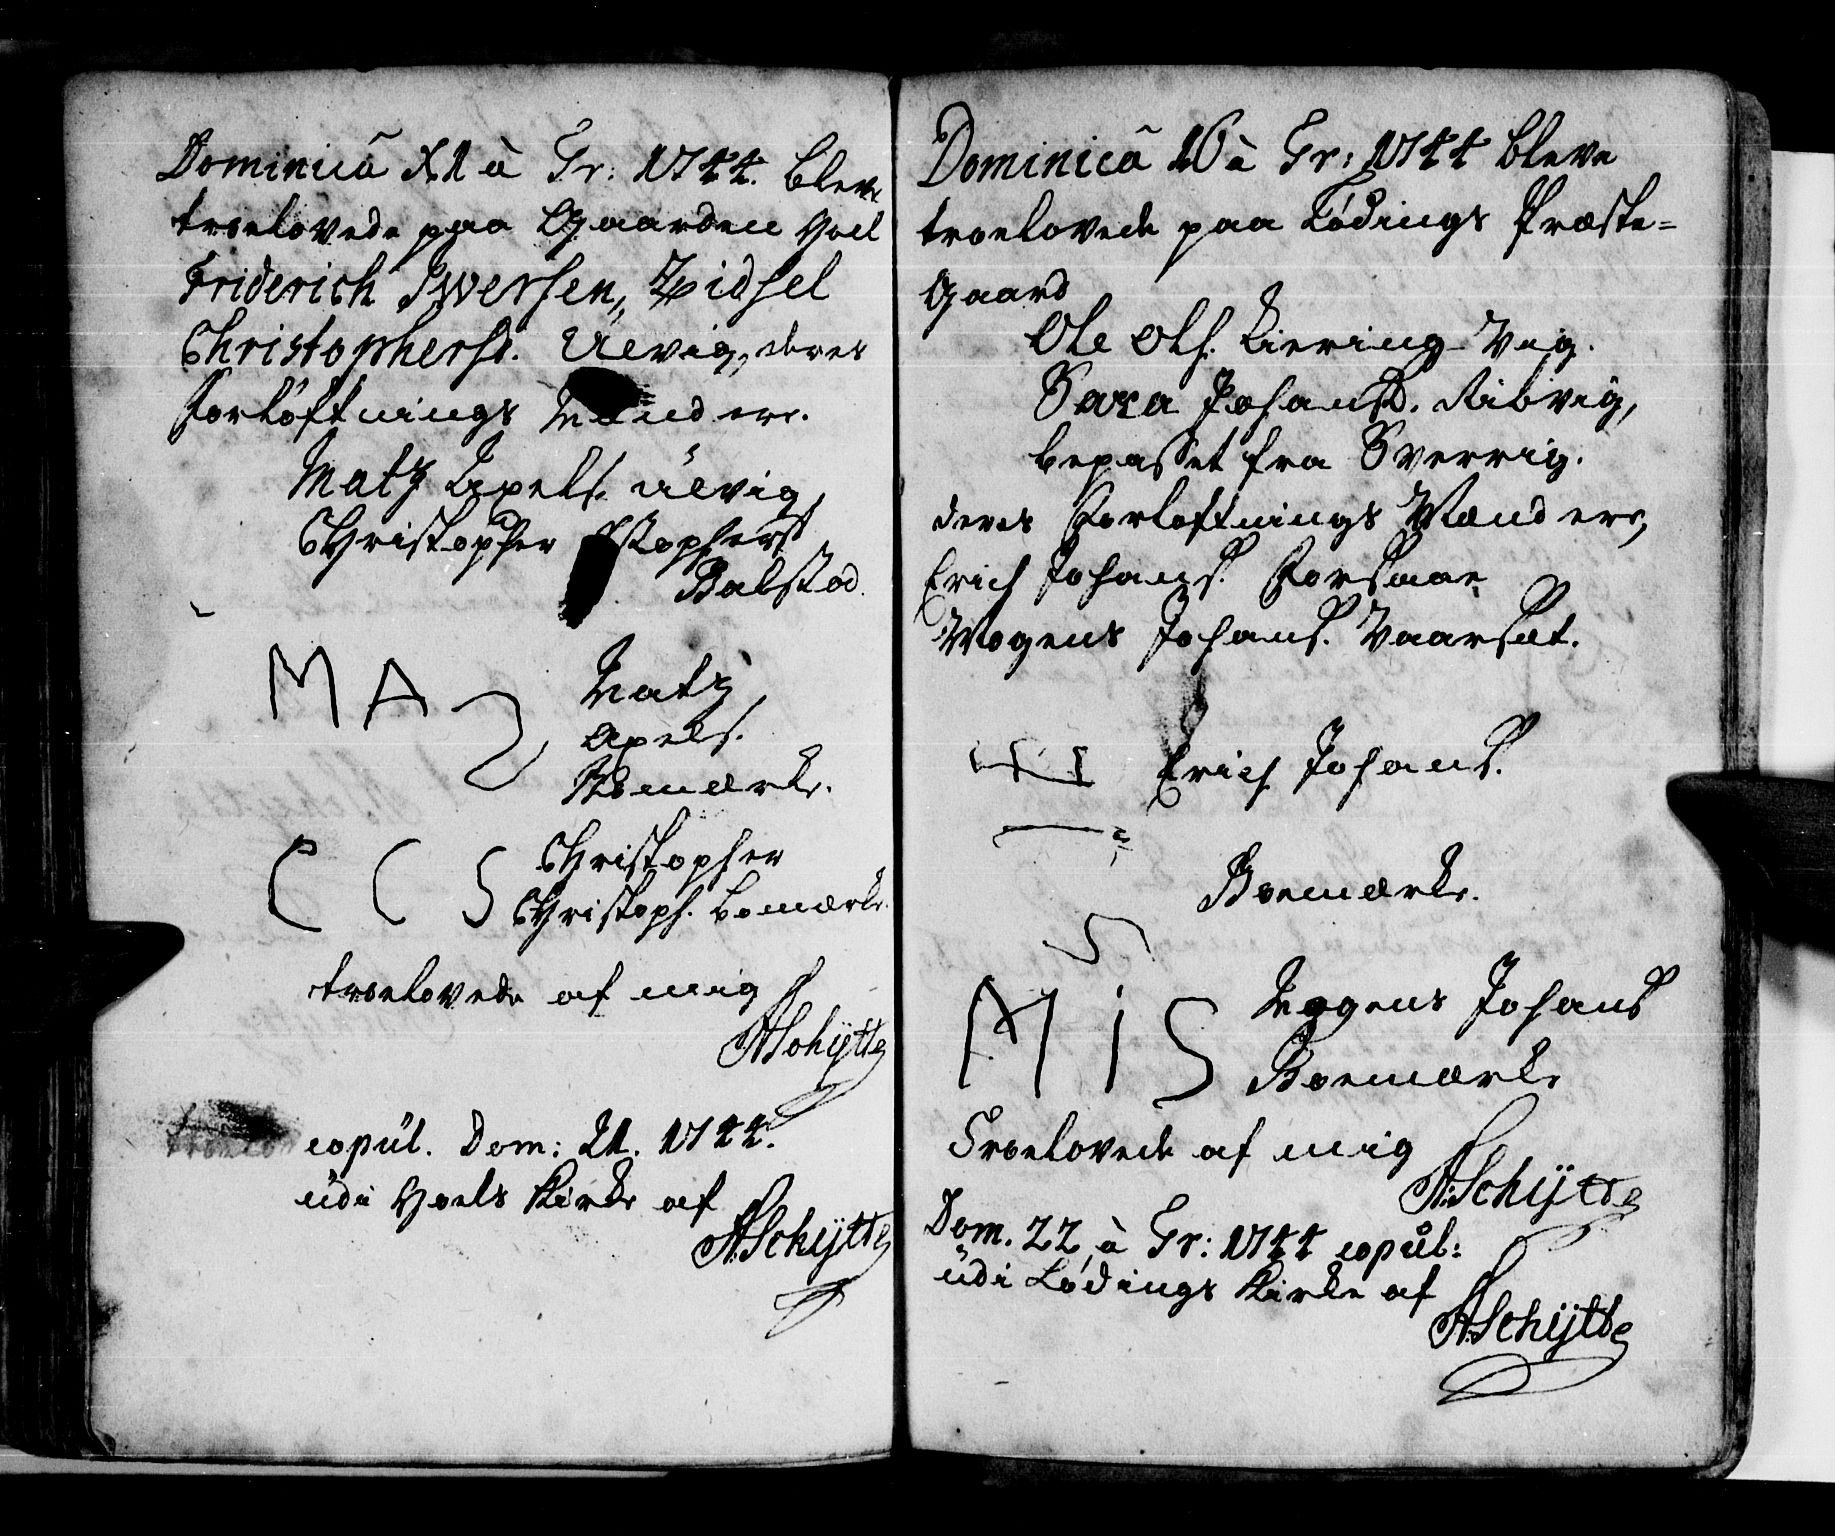 Dominicâ XI à Tr: 1744. bleve
troelovede paa Gaarden Hoel
Friderich Iwersen, Zidsel
Christophersd. Ülvig, deres
Forløftnings Mænd ere.
Matz Apels. Ülvig,
Christopher Christophers
Balstad.
M A
Matz
Apels.
Bomærke.
C C S Christopher
Christoph. bomærke.
troelovede af mig
ASchÿtte
copul. Dom: 21. 1744.
udi Hoels Kirke af
ASchÿtte
Dominicâ 16 à Tr: 1744 bleve
troelovede paa Lødings Præste=
Gaard
Ole Ols. Kiering-Vog.
Sara Johansd. Ribvig,
bepasset fra Sverrig.
deres Forløftnings Mænd ere,
Erich Johans. Forsaae
Mogens Johans. Vaarsæt.
Erich Johans.
Boemærke.
M i S Mogens Johans
Boemærke
Troelovede af mig
ASchÿtte
Dom. 22 à Tr: 1744 copul:
udi Lødings Kirke af
ASchÿtte